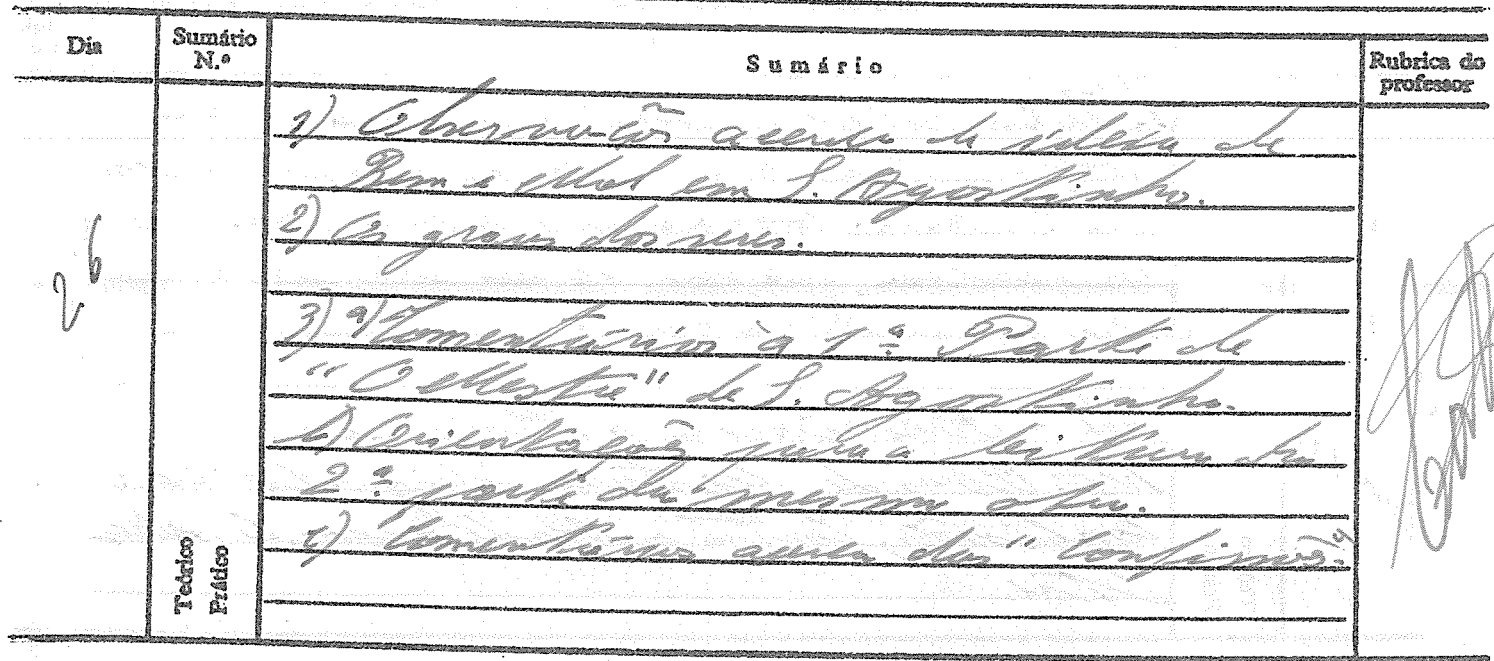 Dia
Sumário
N.º
Sumário
Rubrica do
professor
26
1) Observações acerca da ideia de
Bem e Mal em S. Agostinho.
2) Os graus dos seres.
3) a) Comentários à 1ª Parte de
"O Mestre" de S. Agostinho.
b) Orientações para a leitura da
2ª parte da mesma obra.
c) Comentários acerca das "Confissões"
Teórico
Prático